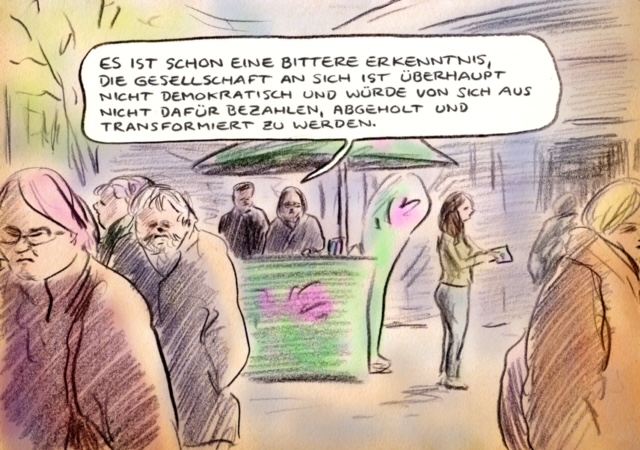 ES IST SCHON EINE BITTERE ERKENNTNIS,
DIE GESELLSCHAFT AN SICH IST ÜBERHAUPT
NICHT DEMOKRATISCH UND WÜRDE VON SICH AUS
NICHT DAFÜR BEZAHLEN, ABGEHOLT UND
TRANSFORMIERT ZU WERDEN.